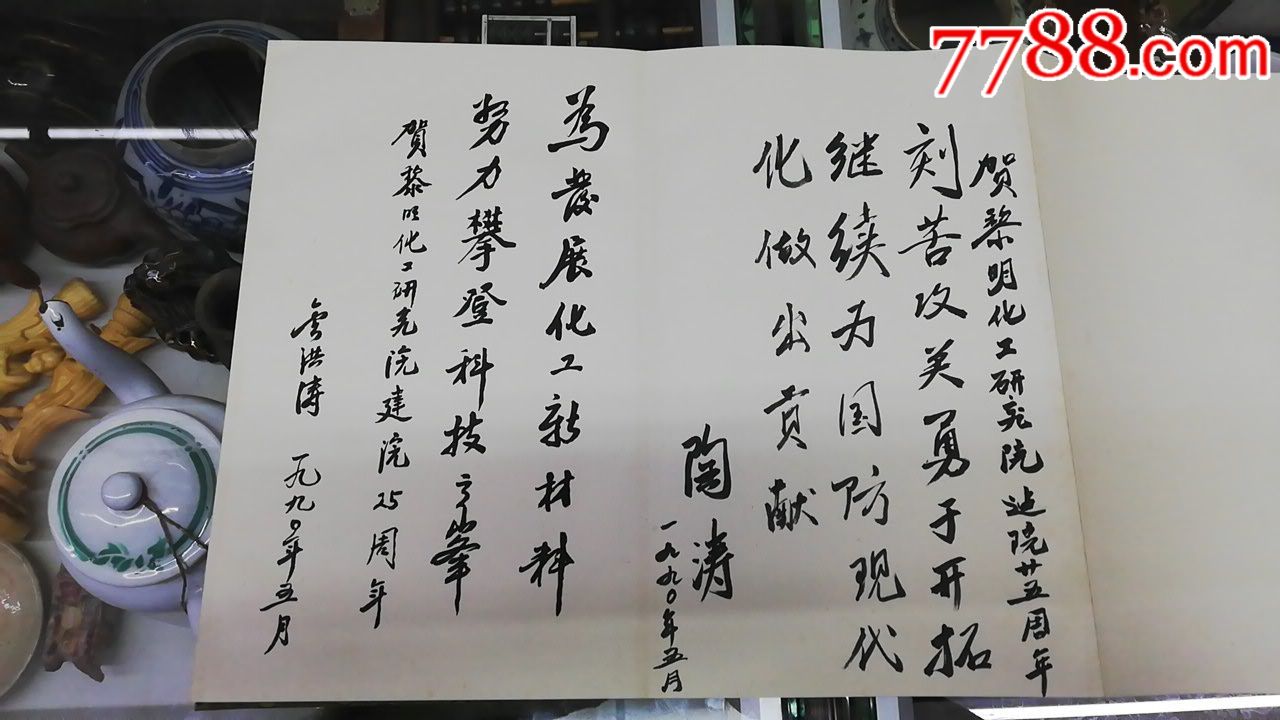 7788.com
贺黎明化工研究院建院廿五周年
刻苦攻关勇于开拓
继续为国防现代
化做出贡献
陶涛
一九九〇年五月
為發展化工新材料
努力攀登科技高峯
賀黎明化工研究院建院25周年
云洪涛
一九九〇年五月